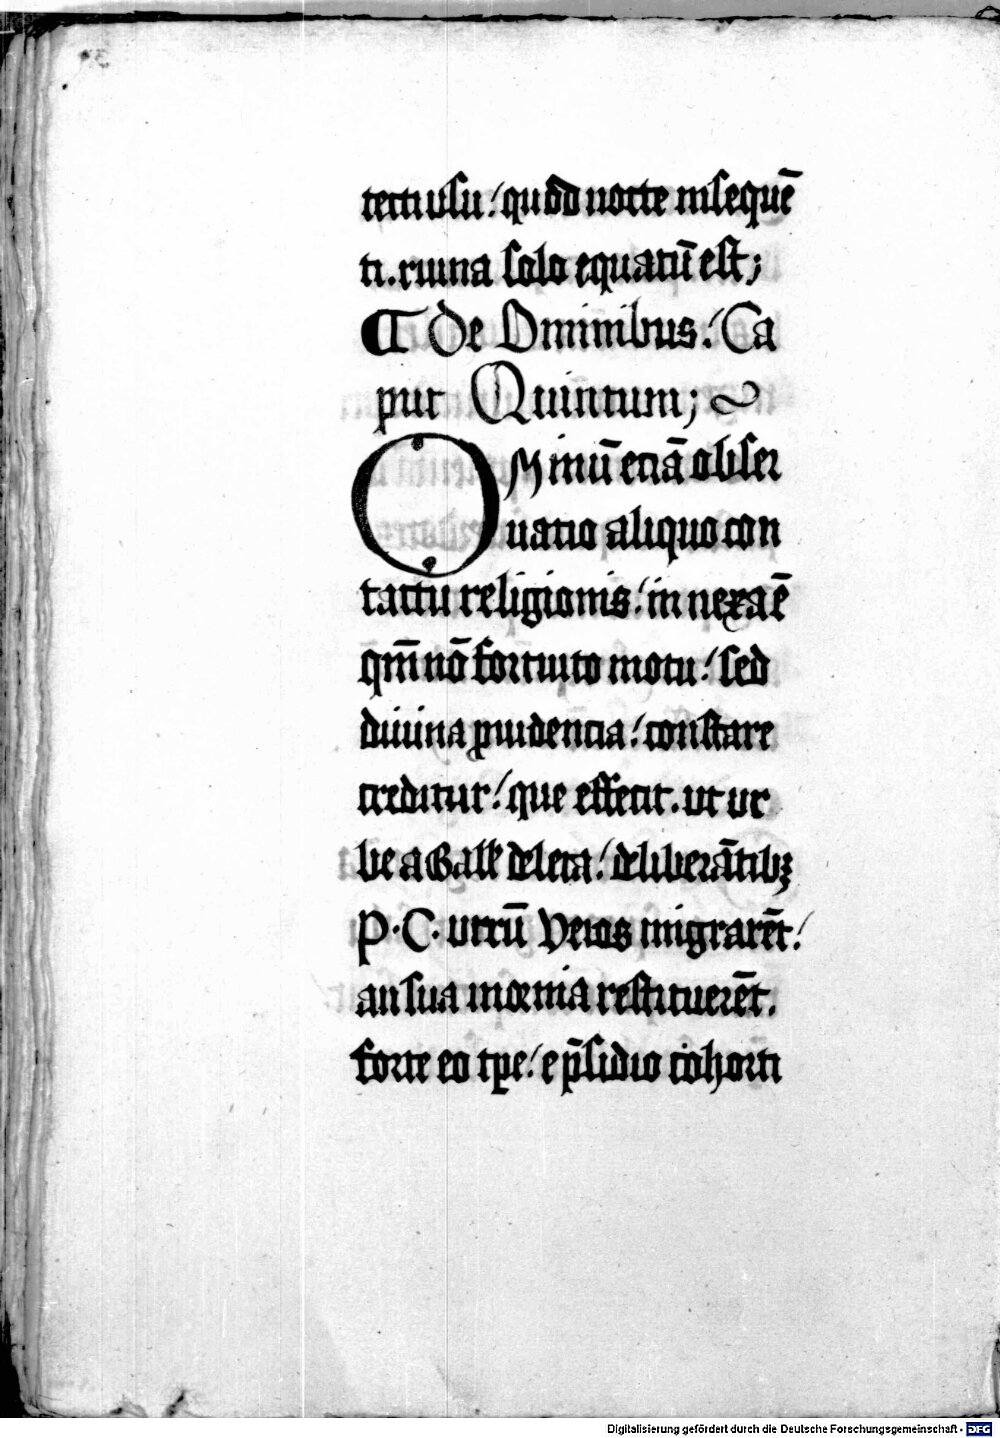 tecti usu / quod nocte insequē
ti . ruina solo equatū est ;
¶ De Ominibus / Ca
put Quintum ;
OMinū eciā obser
uatio aliquo con
tactu religionis / innexa ē
qm̄ nō fortuito motu / sed
diuina prudencia / constare
creditur / que effecit . ut ur
be a Gall deleta / deliberātibꝫ
P . C . utrū Veios migrarēt /
an sua mœnia restituerēt .
forte eo tꝑe / e p̄sidio cohorti
Digitalisierung gefördert durch die Deutsche Forschungsgemeinschaft - DFG